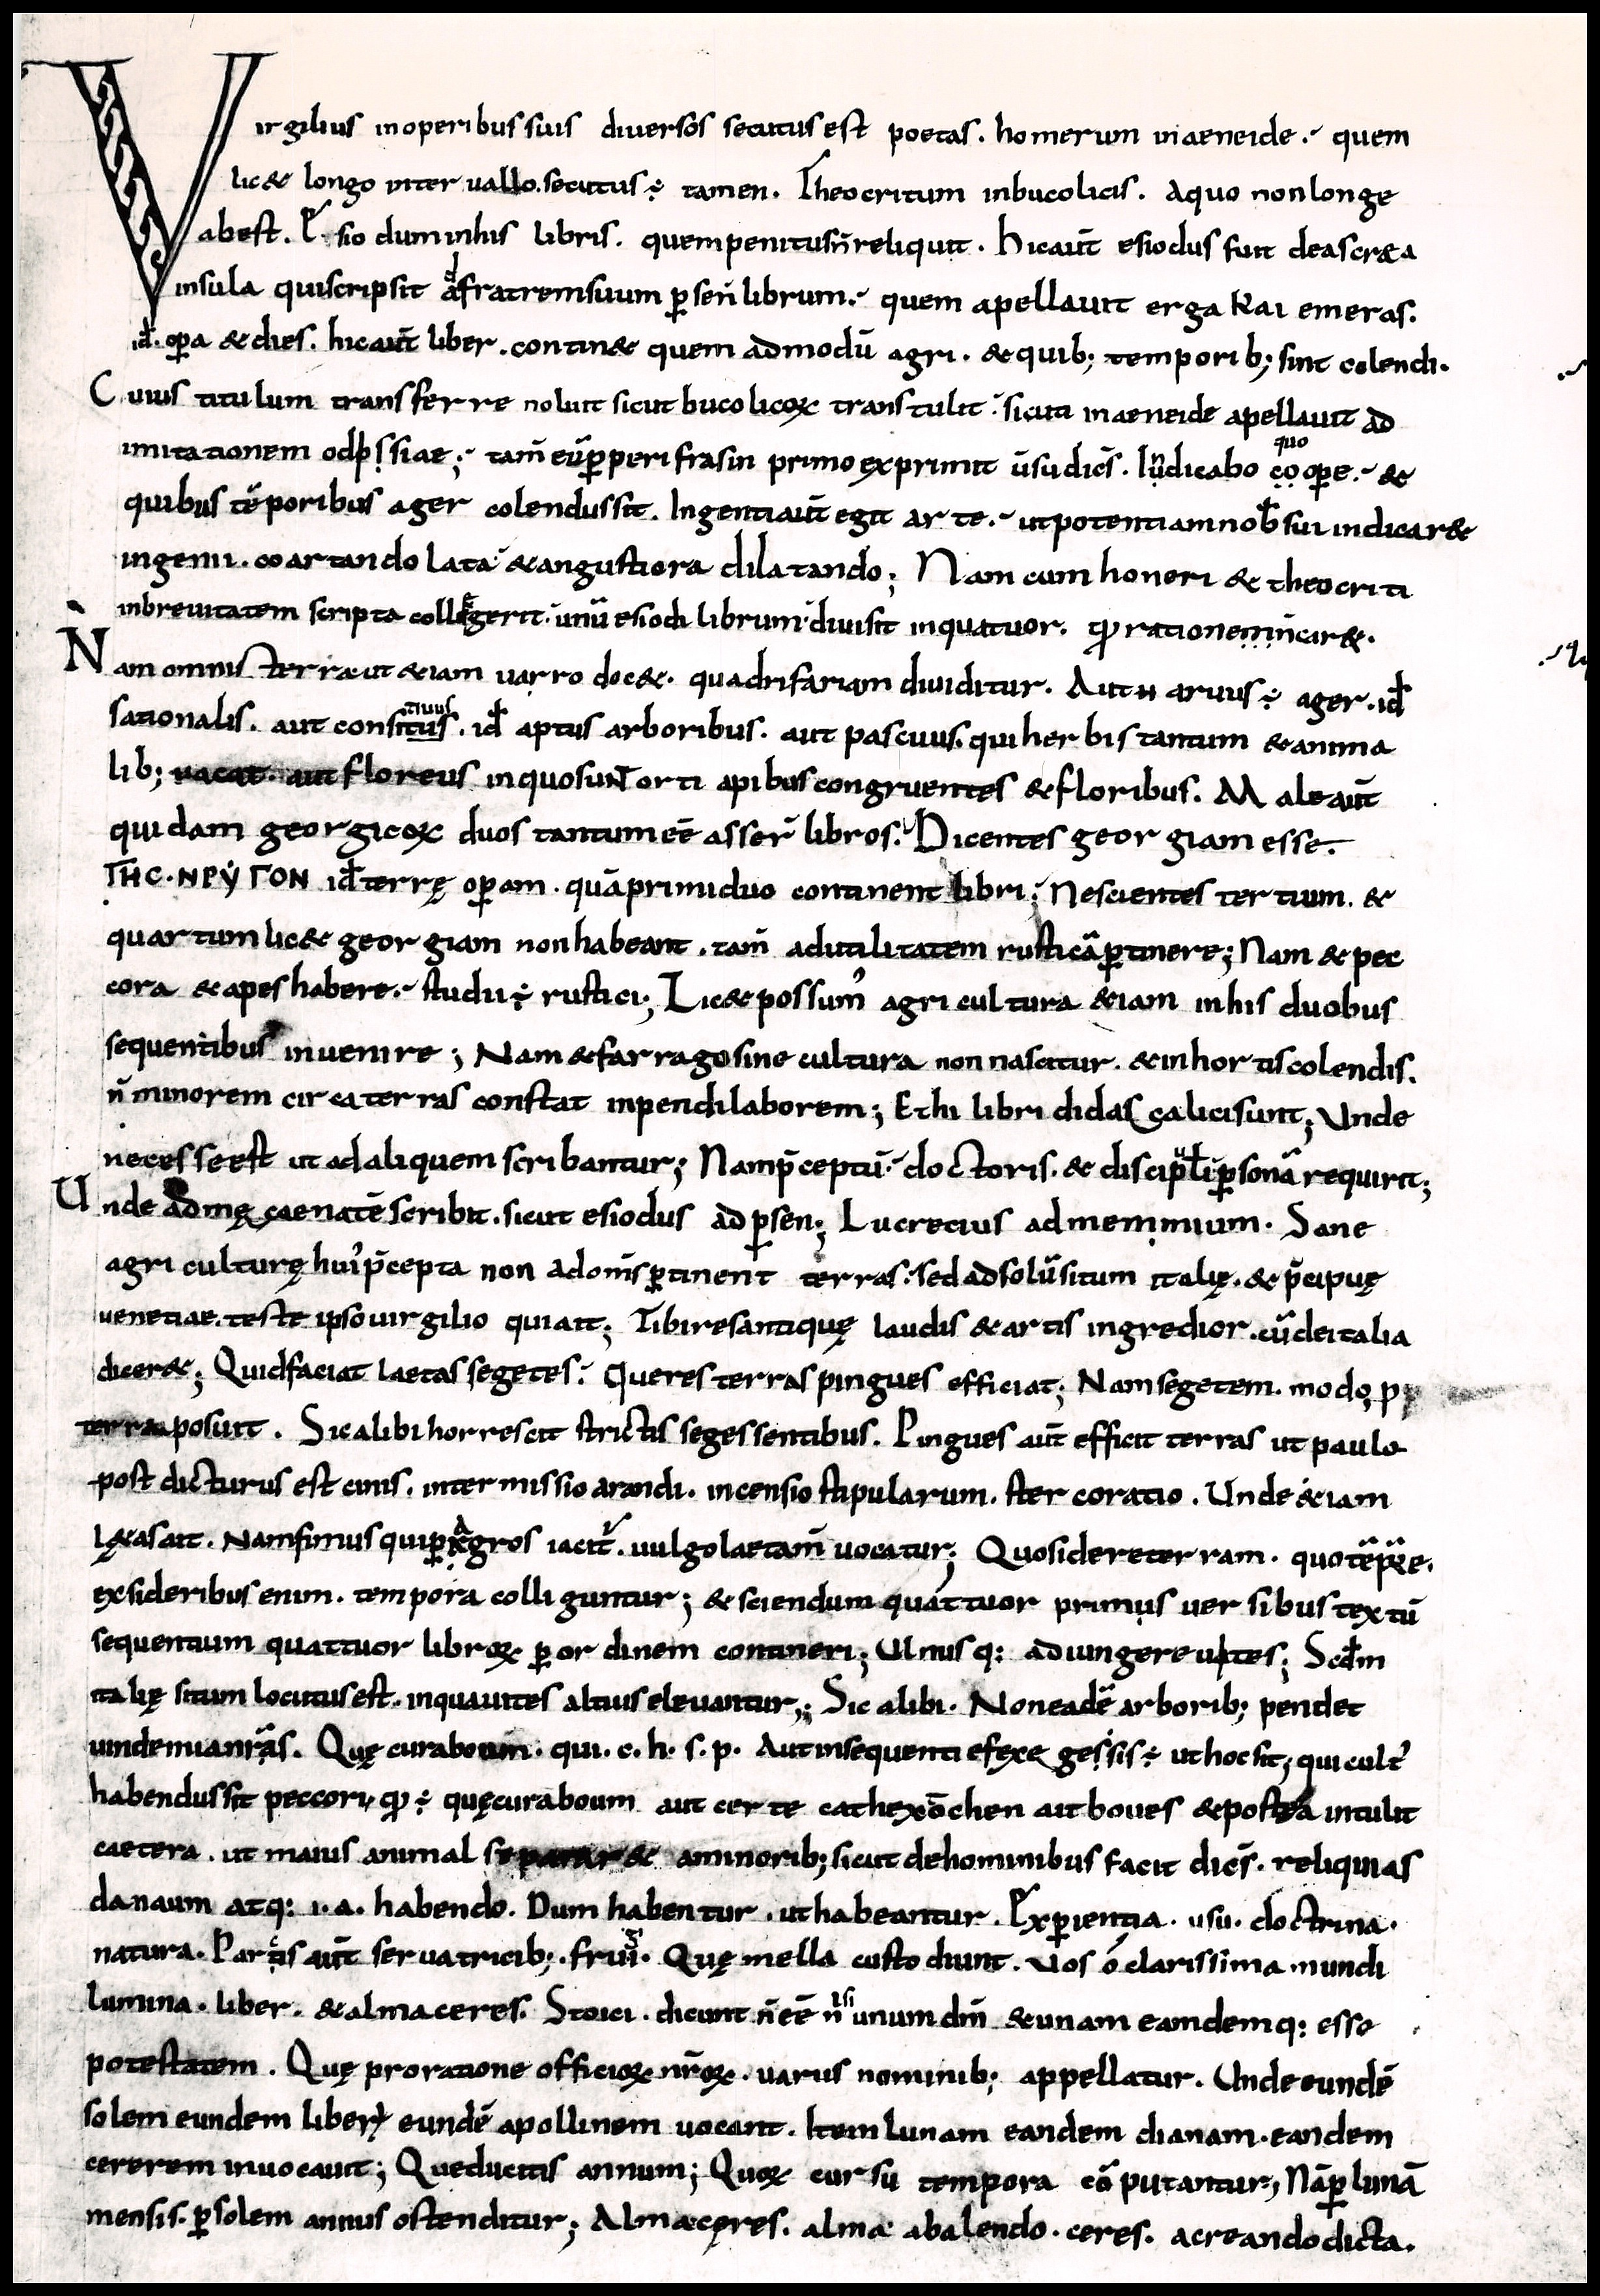 Virgilius inoperibus suis diuersos secutus est poetas. homerum inaeneide. quem
lic& longo inter uallo. secutus ÷ tamen. Theocritum inbucolicis. Aquo nonlonge
abest. E sio dum inhis libris. quempenitusn̄reliquit. hicaut̄ esiodus fuit deascr&a
insula quiscripsit ad fratremsuum ꝑsen̄ librum. quem apellauit erga kai emeras.
id̄. oꝑa & dies. hicaut̄ liber. contin& quem admodū agri. & quib; temporib; sint colendi.
Cuius titulum transferre noluit sicut bucolicoꝝ transtulit. sicuti inaeneide apellauit ad
imitationem odyssiae; tam̄ eū ꝑ perifrasin primo exprimit ūsu dic̄s. Iūdicabo quo oꝑe. &
quibus tēporibus ager colendussit. Ingentiaut̄ egit arte. utpotentiamnob̄ sui indicar&
ingenii. coartando lata &angustiora dilatando; Nam cum honeri & theocriti
inbreuitatem scripta collegerit. unū esiodi librum diuisit inquatuor. ꝓ rationemn̄car&.
Nam omnis terra ut &iam uarro doc&. quadrifariam diuiditur. Aut aruus ÷ ager. id̄
sationalis. aut consitus tiuus. id̄ aptus arboribus. aut pascuus. quiherbis tantum &anima
lib; uacat. aut floreus inquosunt orti apibus congruentes &floribus. Male aut̄
quidam georgicoꝝ duos tantum eē̄ asser̄ libros. Dicentes georgiam esse.
ΓΗC·ΝΡΥΓΟΝ id̄ terrę oꝑam. quāprimiduo continent libri; Nescientes tertium. &
quartum lic& georgiam nonhabeant. tam̄ adutilitatem rusticā ꝑtinere; Nam & pec
cora & apes habere. studii ÷ rustici; Lic& possum᾿ agri cultura &iam inhis duobus
sequentibus inuenire; Nam & farrago sine cultura non nascitur. &inhortis colendis.
n̄ minorem circa terras constat inpendi laborem; Et hi libri didascalici sunt; Unde
necesse est ut ad aliquem scribantur; Nam p̄ceptū doctoris. & discipuli ꝑsonā requirit;
Unde ad męcaenatē scribit. sicut esiodus ad ꝑsen; Lucretius ad memmium. Sane
agri culturę hui᾿ p̄cepta non adom̄s ꝑtinent terras. sed ad solū situm italię. & p̄cipuę
uenetiae. teste ipso uirgilio qui ait; Tibi res antiquę laudis & artis ingredior. cū de italia
dicer&; Quid faciat laetas segetes. Que res terras pingues efficiat; Nam segetem. modo, p
terra posuit. Sic alibi horrescit strictis seges sentibus. Pingues aut̄ efficit terras ut paulo
post dicturus est cinis. intermissio arandi. incensio stipularum. stercoratio. Unde &iam
l&as ait. Nam fimus qui ꝑ agros iacit᾿. uulgo laetam̄ uocatur; Quo sidere terram. quo tēpore.
ex sideribus enim. tempora colliguntur; & sciendum quattuor primus uersibus textū
sequentium quattuor libroꝝ ꝑ ordinem contineri; Ulmisq: adiungere uites; Scd̄m
italię situm locutus est. inqua uites altius eleuantur; Sic alibi. Non eadē arborib; pendet
uindemia nr̄as. Quę cura boum. qui. c. h. s. p. Aut insequenti efexegessis ÷ ut hoc sit; qui cult᾿
habendus sit peccori, ꝙ ÷ quę cura boum aut certe cathexōchen ait boues & postea intulit
caetera. ut maius animal separar& a minorib; sicut de hominibus facit dic̄s. reliquias
danaum atq: i.a. habendo. Dum habentur. ut habeantur. Exꝑientia. usu. doctrina.
natura. Parcis aut̄ seruatricib;. frugi. Quę mella custodiunt. Vos ó clarissima mundi
lumina. liber. & alma ceres. Stoici. dicunt n̄ eē̄ nisi unum dm̄ & unam eamdemq: esse
potestatem. Quę pro ratione officioꝝ nr̄oꝝ. uariis nominib; appellatur. Unde eundē
solem eundem liberum eundē apollinem uocant. Item lunam eandem dianam. eandem
cererem inuocauit; Que ducitis annum; Quoꝝ cursu tempora cō putantur; Nā ꝑ lunā
mensis. ꝑ solem annus ostenditur; Alma ceres. alma ab alendo. ceres. a creando dicta.